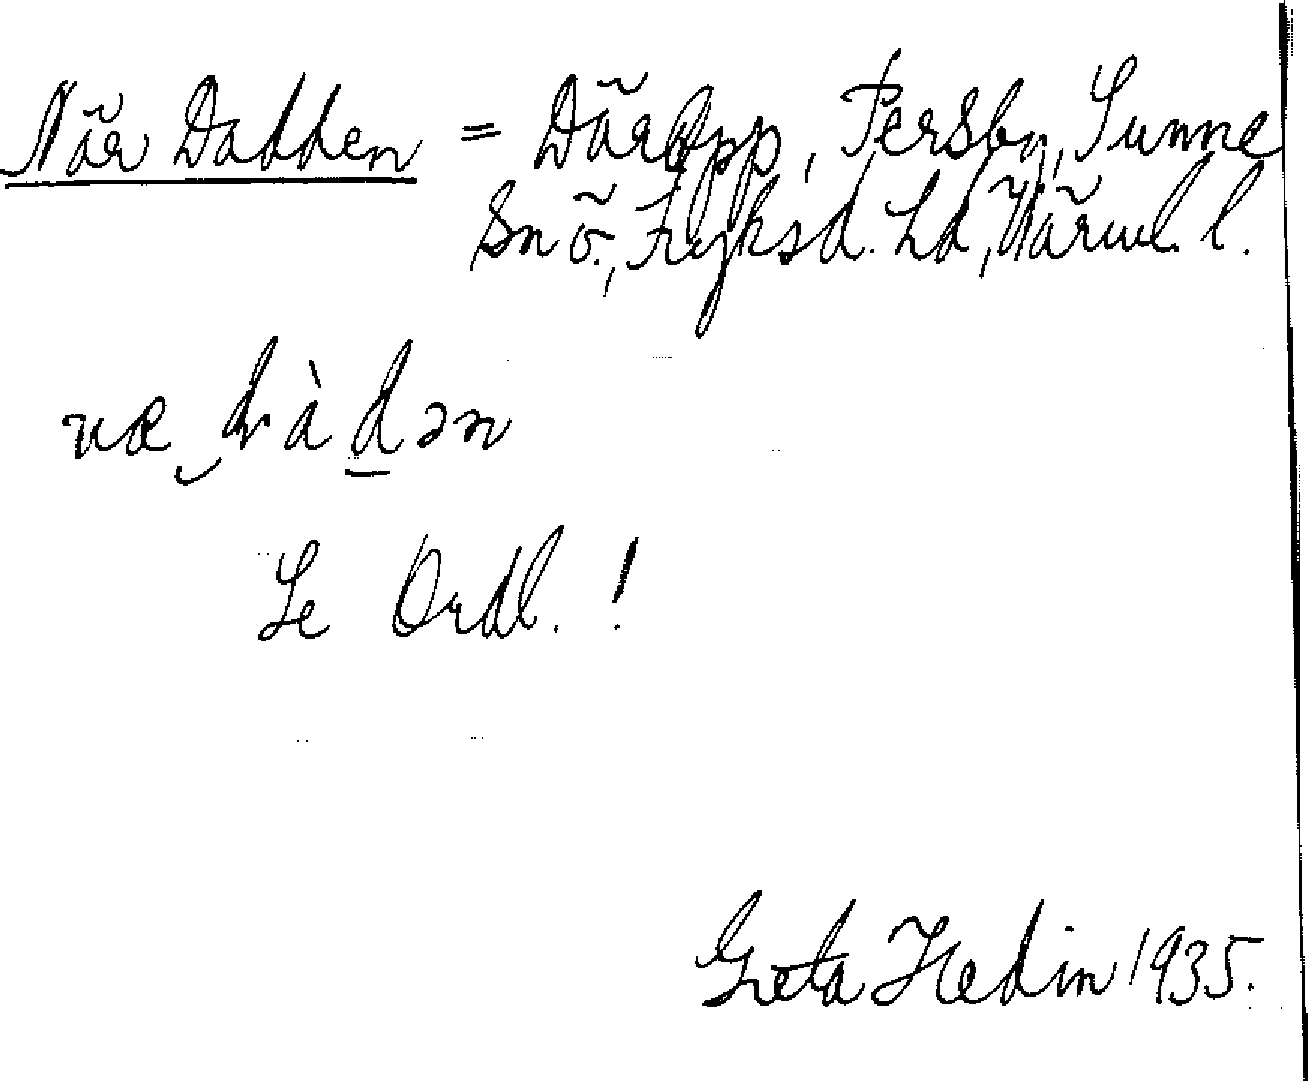 När Dabben = Däropp, Persby, Sunne
Sn ö., Fryksd. Hd, Värml. l.
Se Ordl. !
Greta Hedin 1935.